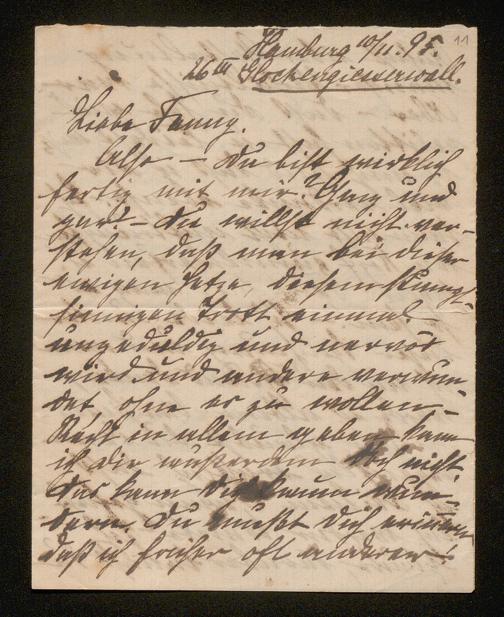 11
Hamburg 10/11. 95.
26 III Glockengiesserwall.
Liebe Fanny.
Also – Du bist wirklich
fertig mit mir? Ganz und
gar? – Du willst nicht ver-
stehen, daß man bei dieser
ewigen Hetze, diesem stumpf-
sinnigen Trott einmal
ungeduldig und nervös
wird und andere verwun-
det, ohne es zu wollen –
Recht in allem geben kann
ich Dir außerdem doch nicht
das kann Dich kaum wun-
dern. Du mußt Dich erinnern
daß ich früher oft anderer